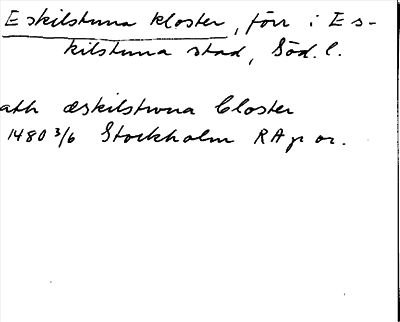 Eskilstuna kloster, förr i Es-
kilstuna stad, Söd. l.
ath æskilstwna Closter
1480 3/6 Stockholm RA p or.